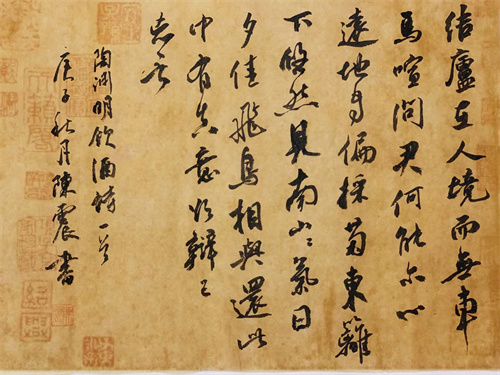 結廬在人境而無車
馬喧問君何能尔心
遠地自偏採菊東籬
下悠然見南山〻氣日
夕佳飛鳥相與還此
中有真意欲辯已
忘言
陶淵明飲酒詩一首
庚子秋月陳震書